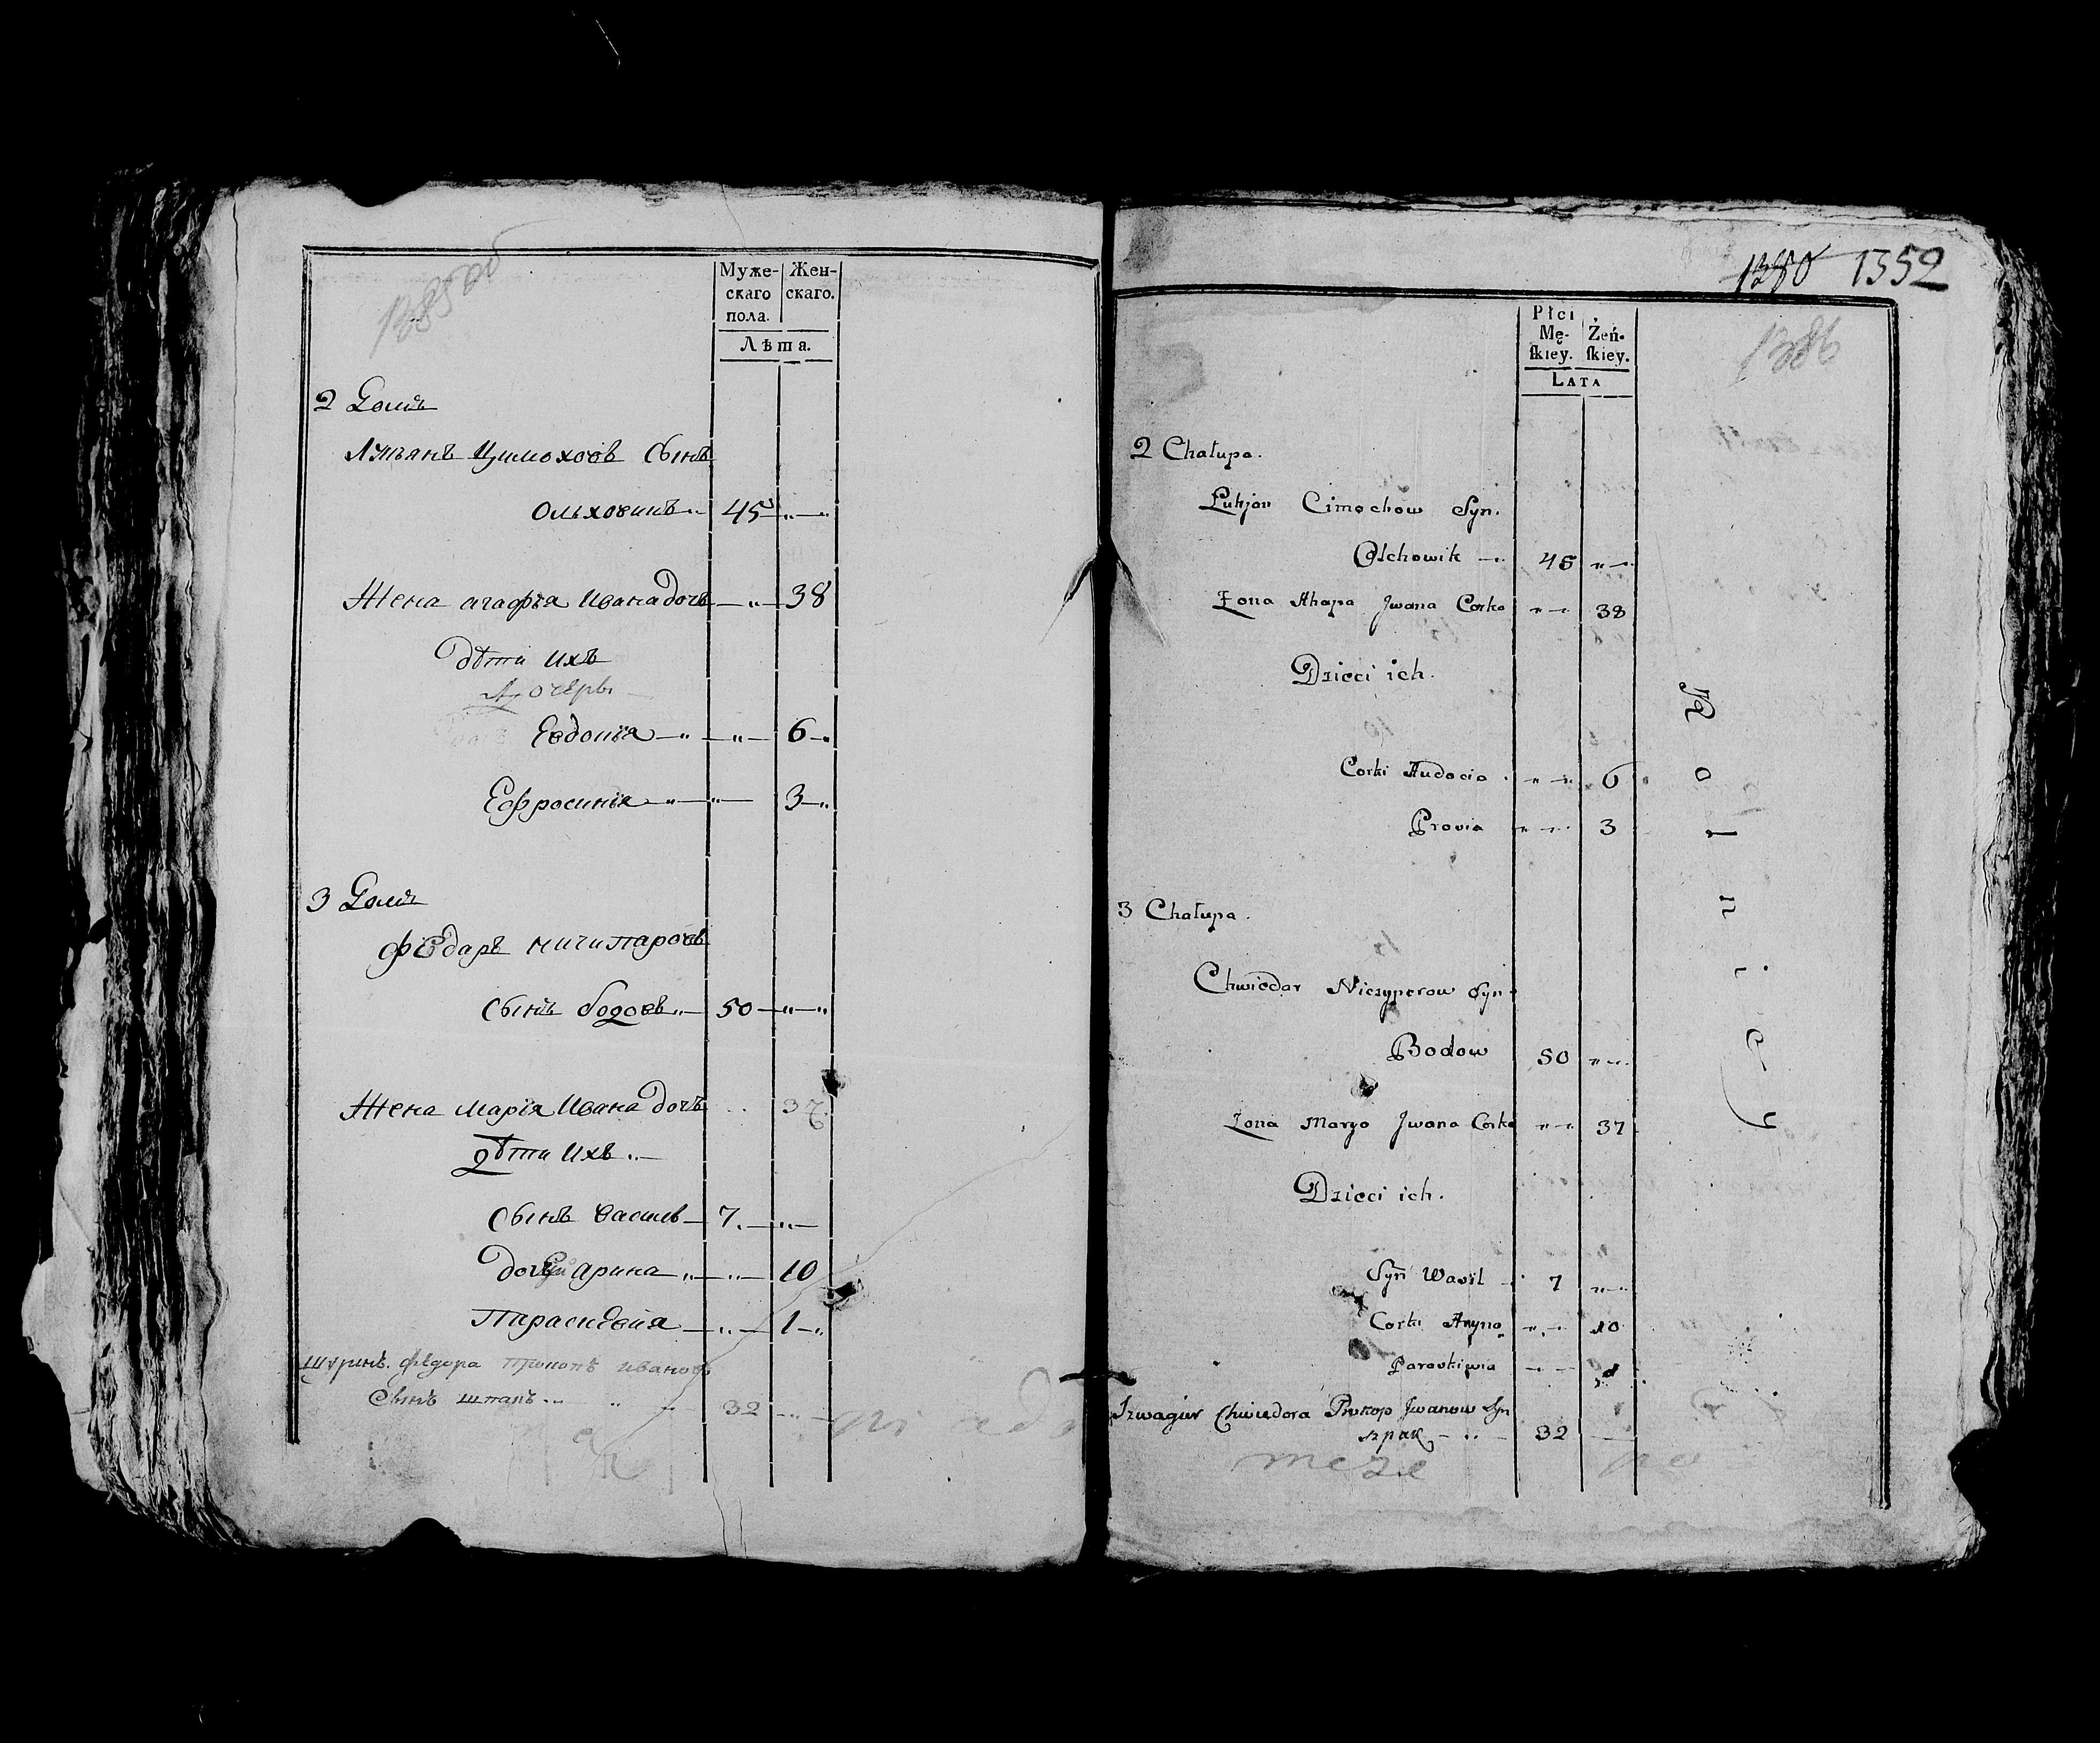 1385 об
Муже-
скаго
пола.
Жен-
скаго.
Лѣта.
2 Домъ
Лукьянъ Цимоховъ Сынъ
Ольховикъ „ 45 „ „
Жена агафья Ивана дочь „ 38
дѣти ихъ
Дочеръ
Евдокія „ „ 6 „
Ефросинія „ „ 3 „
3 Домъ
фЕдаръ ничипаровъ
Сынъ бодовъ „ 50 „ „
Жена Марія Ивана дочь 37
дѣти ихъ „
Сынъ василь 7 „
дочь арина „ „ 10
Параскевія „ 1 „
шуринъ федора Прокопъ ивановъ
Сынъ шпакъ „ „ 32 „
1380 1352
1386
Płci
Mę-
ſkiey.
Żeń-
ſkiey.
LATA
2 Chałupa.
Łukjan Cimochow Syn.
Olchowik 45 „
Żona Ahapa Jwana Corka „ 38
Dzieci ich.
Corki Audocia „ 6
Prosia „ 3
3 Chałupa.
Chwiedor Niczyperow Syn
Bodow 50 „
Żona Marya Jwana Corka „ 37
Dzieci ich.
Syn Wasil 7 „
Corki Aryna „ 10
Paraskiwia 1
Szwagier Chwiedora Prokop Jwanow Syn
szpak „ 32
Rolnicy